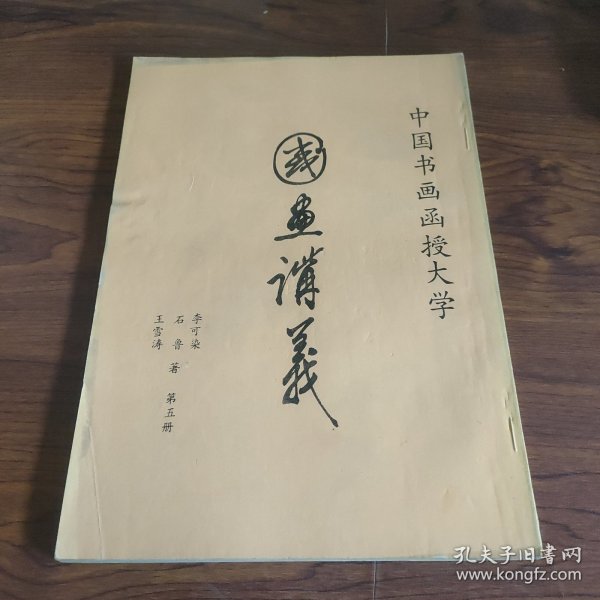 中国书画函授大学
國畫講義
李可染
石鲁 著
王雪涛
第五册
孔夫子旧書网
www.kongfz.com